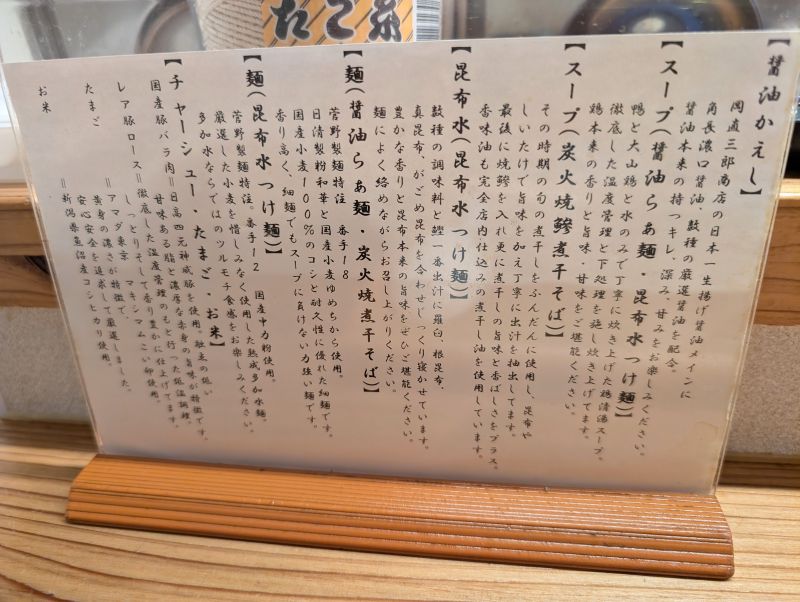 【醤油かえし】
岡直三郎商店の日本一生揚げ醤油メインに
角長濃口醤油、数種の厳選醤油を配合。
醤油本来の持つキレ、深み、甘みをお楽しみください。
【スープ(醤油らぁ麺・昆布水つけ麺)】
鴨と大山鶏と水のみで丁寧に炊き上げた鶏清湯スープ。
徹底した温度管理と下処理を施し炊き上げてます。
鶏本来の香りと旨味・甘味をご堪能ください。
【スープ(炭火焼鯵煮干そば)】
その時期の旬の煮干しをふんだんに使用し、昆布や
しいたけで旨味を加え丁寧に出汁を抽出してます。
最後に焼鯵を入れ更に煮干しの旨味と香ばしさをプラス。
香味油も完全店内仕込みの煮干し油を使用しています。
【昆布水(昆布水つけ麺)】
数種の調味料と鰹一番出汁に羅臼、根昆布、
真昆布、がごめ昆布を合わせじっくり寝かせています。
豊かな香りと昆布本来の旨味をぜひご堪能ください。
麺によく絡めながらお召し上がりください。
【麺(醤油らぁ麺・炭火焼煮干そば)】
菅野製麺特注 番手18
日清製粉和華と国産小麦ゆめちから使用。
国産小麦100%のコシと耐久性に優れた細麺です。
香り高く、細麺でもスープに負けない力強い麺です。
【麺(昆布水つけ麺)】
菅野製麺特注。番手12 国産中力粉使用。
厳選した小麦を惜しみなく使用した熟成多加水麺。
多加水ならではのツルモチ食感をお楽しみください。
【チャーシュー・たまご・お米】
国産豚バラ肉=日高四元神威豚を使用。融点の低い
甘味ある脂と濃厚な赤身の旨味が特徴です。
レア豚ロース=徹底した温度管理のもと行った低温調理。
しっとりそして香り豊かに仕上げてます。
たまご =アマダ東京 マキシマムこい卵使用。
黄身の濃さが特徴で、
安心安全を追求して厳選しました。
お米 =新潟県魚沼産コシヒカリ使用。